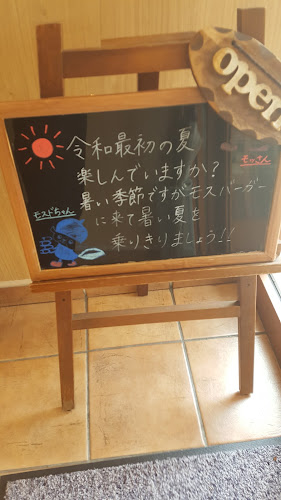 open
令和最初の夏
楽しんでいますか?
暑い季節ですがモスバーガー
に来て暑い夏を
乗りきりましょう!!
モスドちゃん